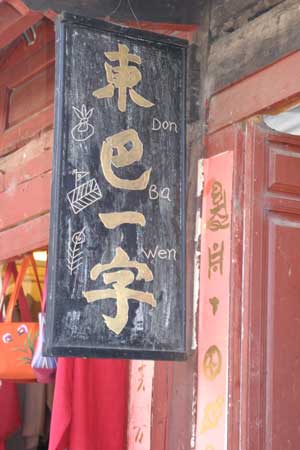 東巴一字
Don
Ba
Wen